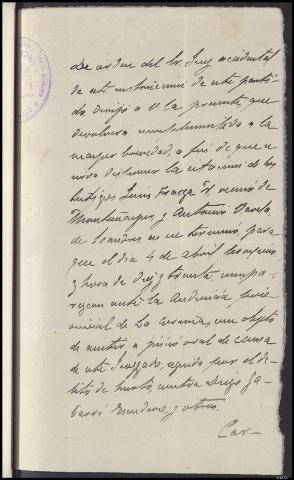 De orden del Sr. Juez accidental
de esta instrucción de este parti-
do, dirijo a V. la presente, que
devolverá cumplimentada a la
mayor brevedad, a fin de que se
sirva disponer la citación de los
testigos Luis Fraga vecino de
Montouto y Antonio Varela
de en su termino, para
que el día 4 de abril
y hora de diez y treinta, compa-
rezcan ante la Audiencia provi-
ncial de La Coruña, con objeto
de asistir a juicio oral de causa
de este Juzgado, seguida por el de-
lito de hurto contra Diego Ga-
barri Escudero y otros.
Car-